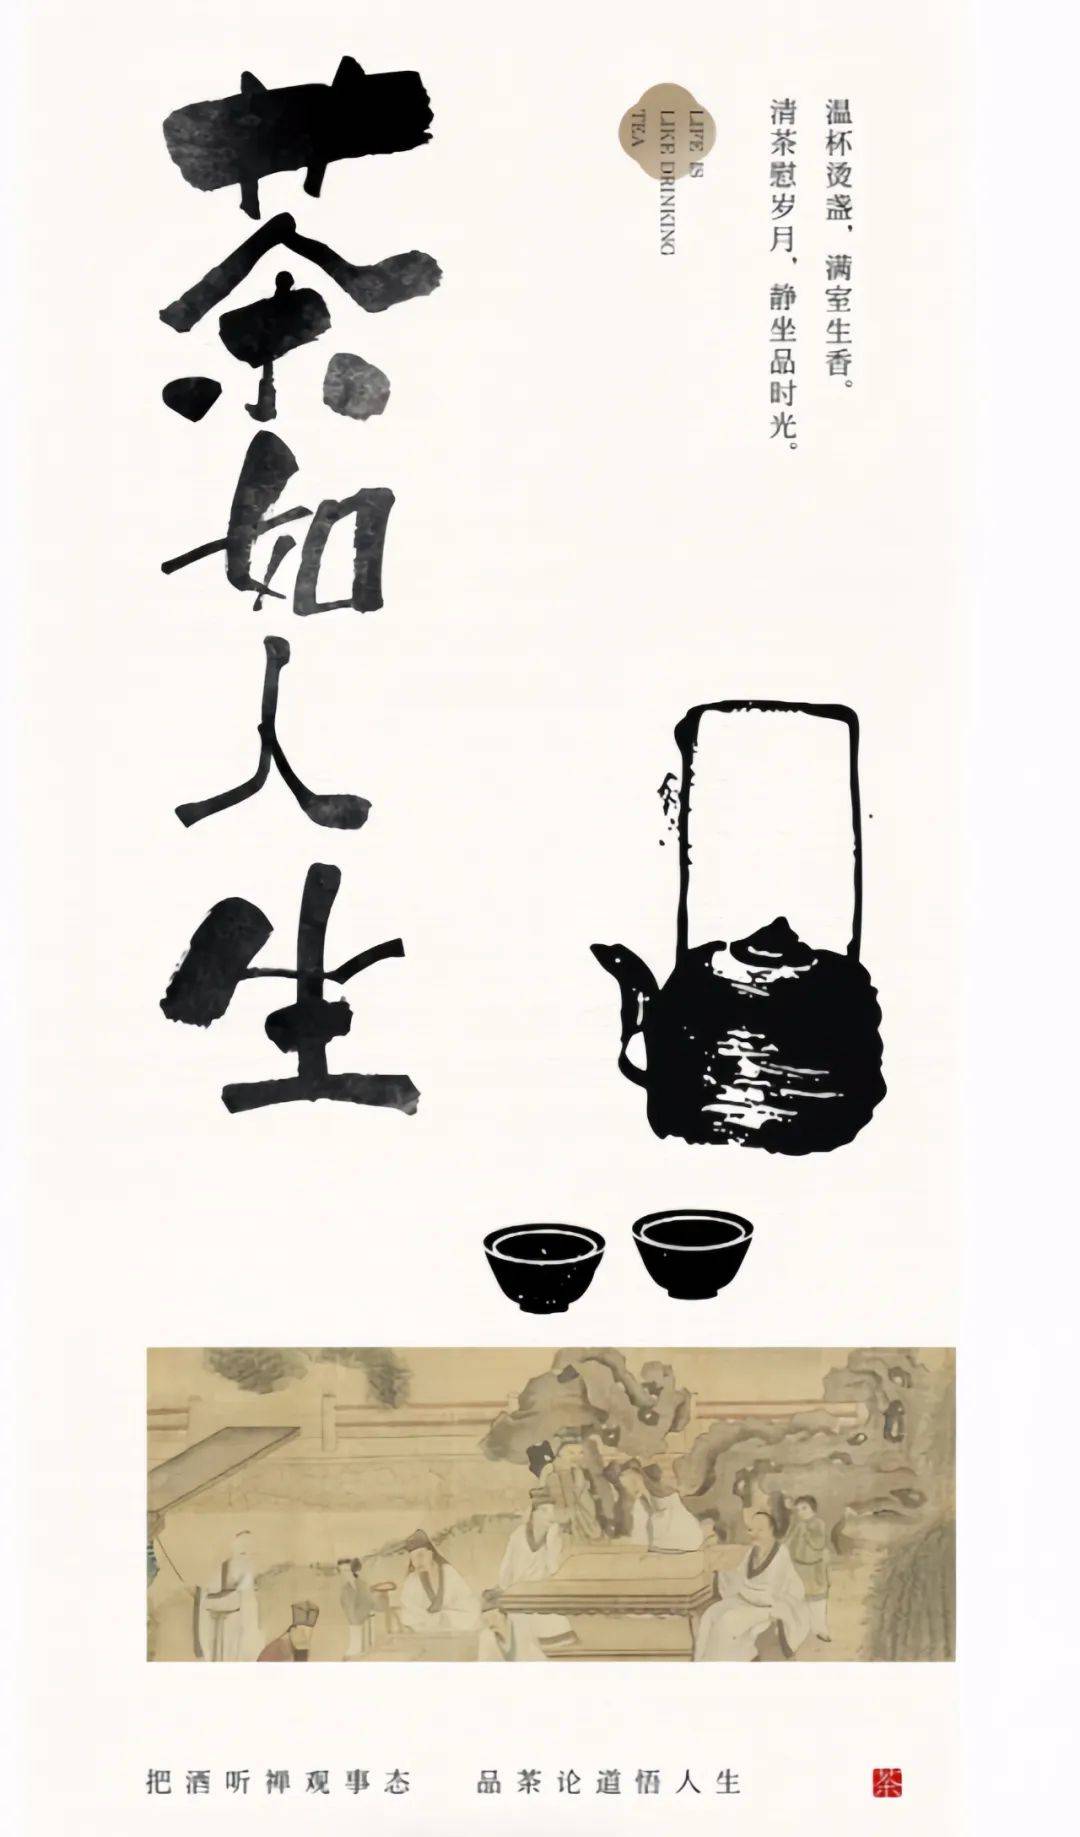 茶如人生
LIFE IS
LIKE DRINKING
TEA
温杯烫盏，满室生香。
清茶慰岁月，静坐品时光。
把酒听禅观事态 品茶论道悟人生
茶